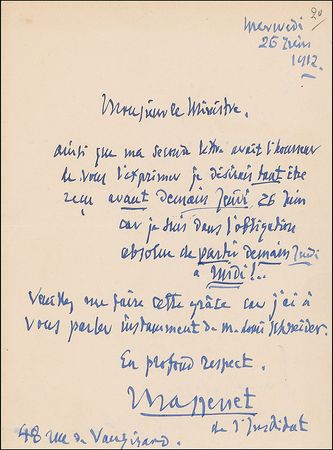 20
Mercredi
26 Juin
1912.
Monsieur le Ministre.
ainsi que ma seconde lettre avait l'honneur
de vous l'exprimer je désirais tant être
reçu avant demain Jeudi, 26 Juin
car je suis dans l'obligation
absolue de partir demain Jeudi
à midi !..
Veuillez me faire cette grâce car j'ai à
vous parler instamment de M. Louis Schneider.
En profond respect.
Massenet
de l'Institut
48 rue de Vaugirard.